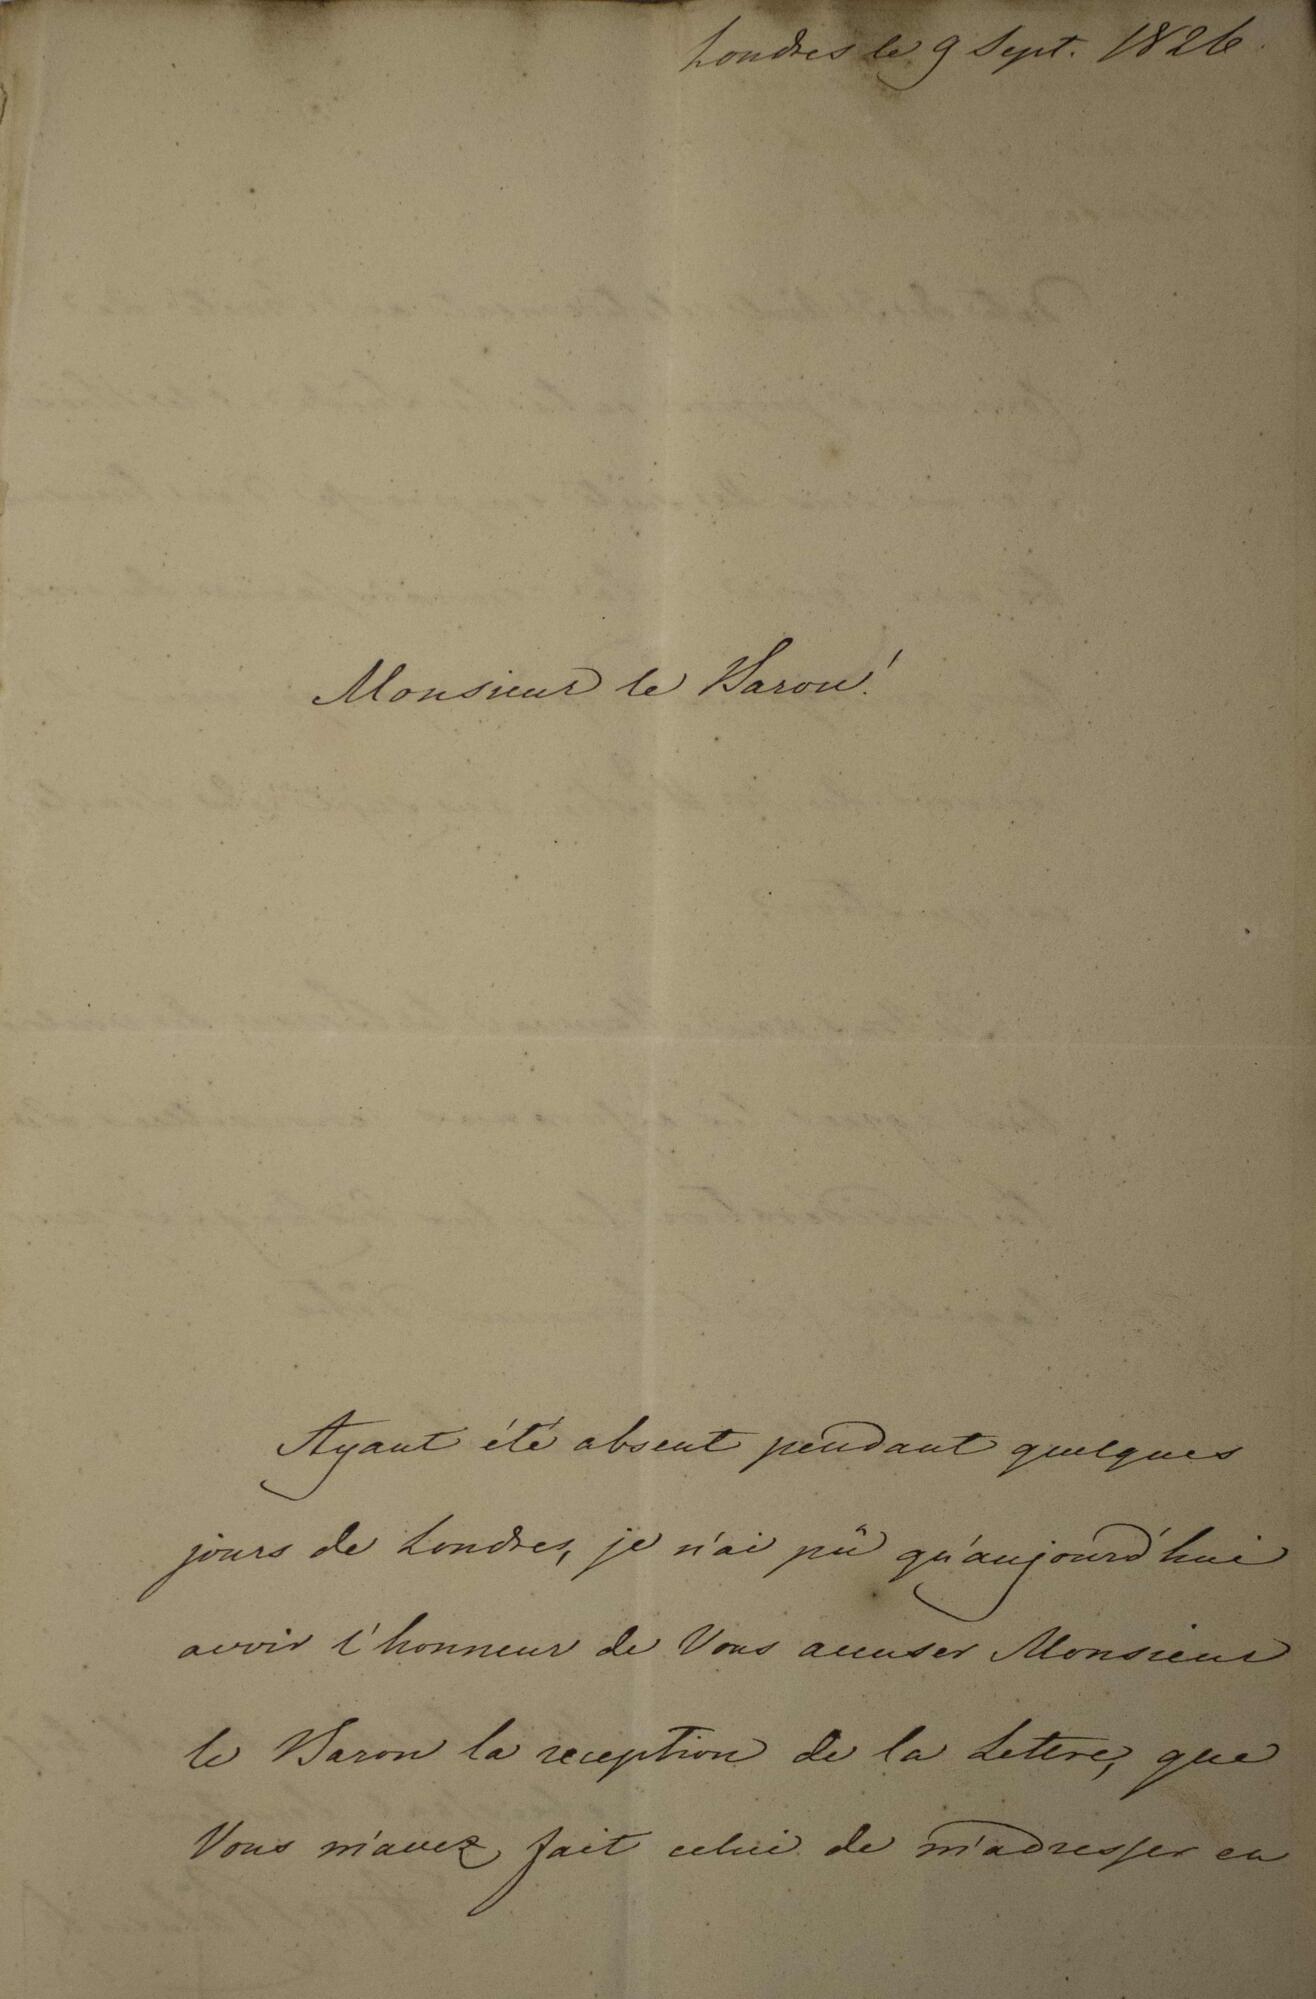 Londres le 9 Sept. 1826.
Monsieur le Baron!
Ayant été absent pendant quelques
jours de Londres, je n'ai pû qu'aujourd'hui
avoir l'honneur de Vous accuser Monsieur
le Baron la reception de la Lettre, que
Vous m'avez fait celui de m'adresser en